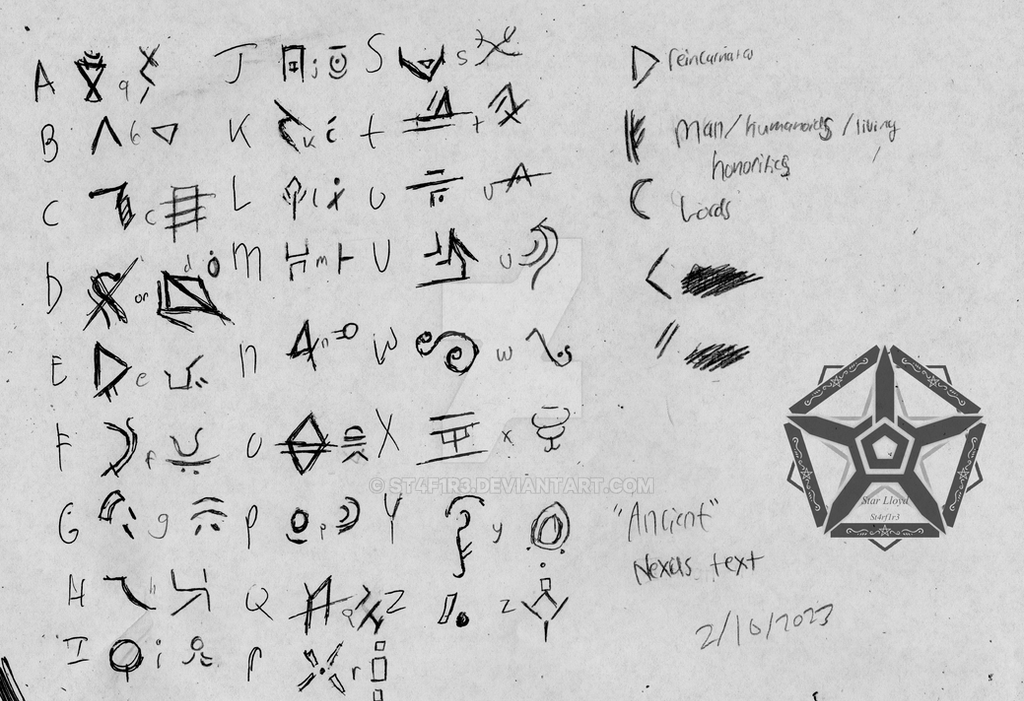 A a J j S s
B b K k t t
C c L l U u
D or d M m U u
E e n n W w
F f O X x
G g P p Y y
H h Q q Z z
I i r r
reincarnated
Man/humanoids/living
honorifics
Lords
© ST4F1R3.DEVIANTART.COM
Star Lloyd
St4rf1r3
"Ancient"
Nexus text
2/10/2023